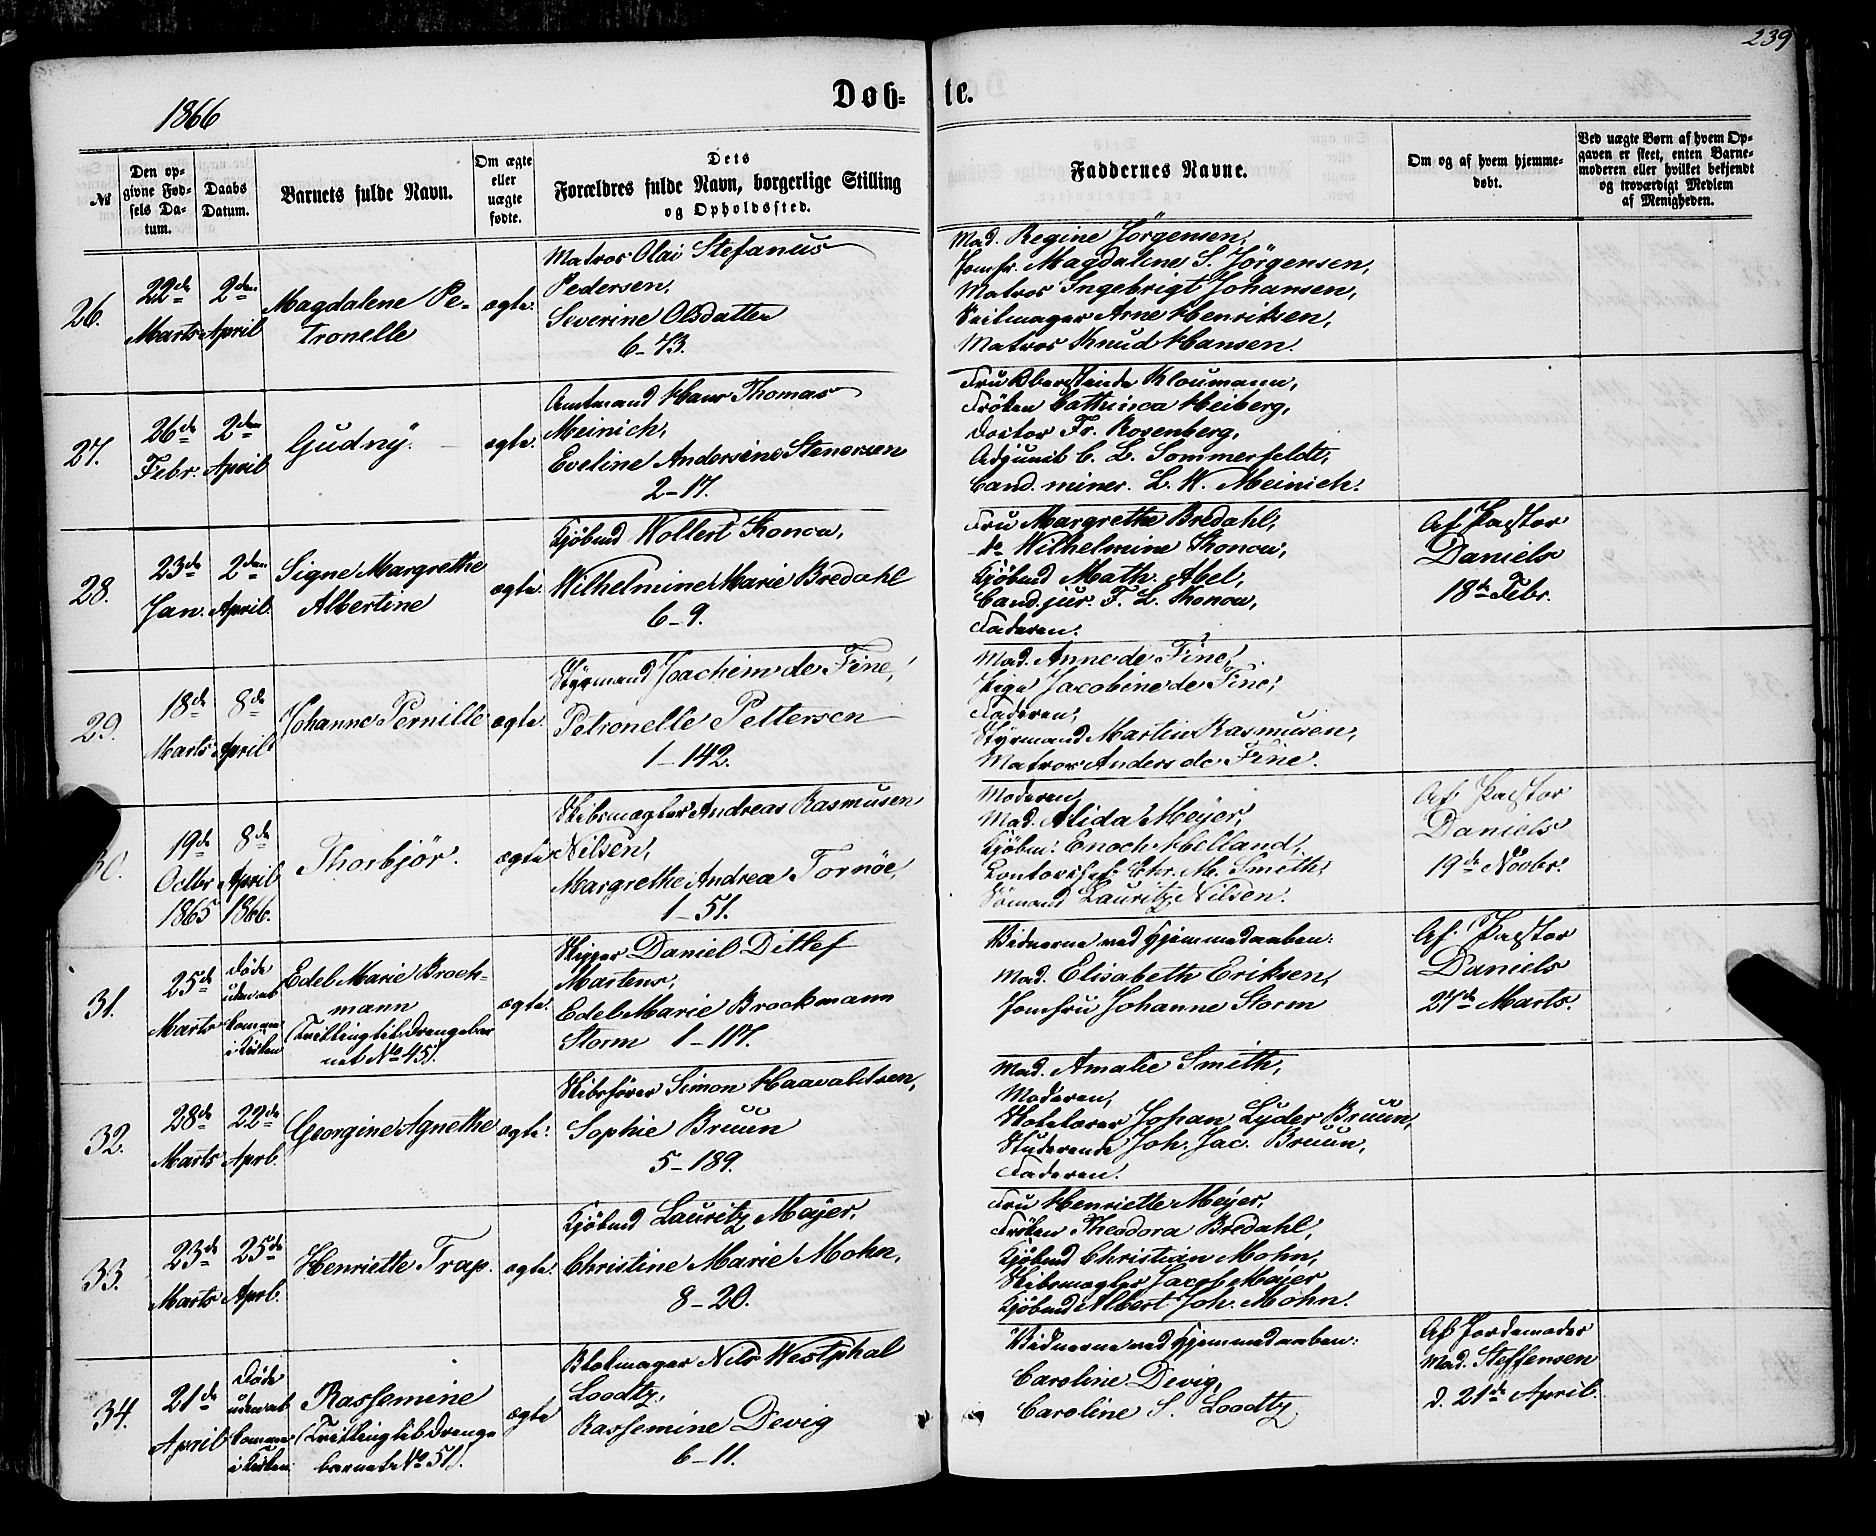 239
1866
Døb-te.
№
Den op-
givne Fød-
sels Da-
tum.
Daabs
Datum.
Barnets fulde Navn.
Om ægte
eller
uægte
fødte.
Dets
Forældres fulde Navn, borgerlige Stilling
og Opholdssted.
Faddernes Navne.
Om og af hvem hjemme-
døbt.
Ved uægte Børn af hvem Op-
gaven er skeet, enten Barne-
moderen eller hvilket bekjendt
og troværdigt Medlem
af Menigheden.
26.
22de
Marts
2den
April
Magdalene Pe-
tronelle
ægte.
Matros Olai Stefanus
Pedersen,
Severine Olsdatter
6-73.
Mad. Regine Jörgensen,
Jomfr. Magdalene S. Jörgensen,
Matros Ingebrigt Johansen,
Seilmager Arne Henriksen,
Matros Knud Hansen.
27.
26de
Febr.
2den
April
Gudny.
ægte.
Amtmand Hans Thomas
Meinich,
Eveline Andersine Stenersen
2-17.
Fru Oberstinde Kloumann,
Fröken Cathinca Heiberg,
Doctor Fr. Rosenberg,
Adjunct C. L. Sommerfeldt,
Cand. miner. L. W. Meinich.
28.
23de
Jan.
2den
April.
Signe Margrethe
Albertine
ægte.
Kjöbmd Wollert Konow,
Wilhelmine Marie Bredahl
6-9.
Fru Margrethe Bredahl,
do Wilhelmine Konow,
Kjöbmd Math. Abel,
Cand. jur. F. L. Konow,
Faderen.
Af Pastor
Daniels
18de Febr.
29.
18de
Marts
8de
April
Johanne Pernille
ægte.
Styrmand Joachim de Fine,
Petronelle Pettersen
1-142.
Mad. Anne de Fine,
Pige Jacobine de Fine,
Faderen,
Styrmand Martin Rasmusen,
Matros Anders de Fine.
19de
Octbr
1865
8de
April
1866.
Thorbjör.
ægte
Skibsmægler Andreas Rasmusen
Nilsen,
Margrethe Andrea Tornöe,
1-51.
Moderen,
Mad. Alida Meyer,
Kjöbm. Enoch Helland,
Kontorchef Chr. M. Smith,
Sömand Lauritz Nilsen.
Af Pastor
Daniels
19de Novbr.
31.
25de
Marts
Døde
uden at
komme
i Kirken
Edel Marie Brock-
mann
(Tvilling til Drengebar
net No 45).
ægte.
Skipper Daniel Ditlef
Martens,
Edel Marie Brockmann
Storm 1-117.
Vidnerne ved Hjemmedaaben:
Mad. Elisabeth Eriksen,
Jomfru Johanne Storm
Af Pastor
Daniels
27de Marts.
32.
28de
Marts
22de
Aprl.
Georgine Agnethe
ægte.
Skibsfører Simon Haavaldsen,
Sophie Bruun
5-189.
Mad. Amalie Smith,
Moderen,
Skolelærer Johan Lyder Bruun,
Studerende Joh. Jac. Bruun,
Faderen.
33.
23de
Marts
25de
Aprl.
Henriette Trap.
ægte.
Kjöbmd Lauritz Mayer,
Christine Marie Mohn,
8-20.
Fru Henriette Meyer,
Fröken Theodora Bredahl,
Kjöbmd Christian Mohn,
Skibsmægler Jacob Mayer
Kjöbmd Albert Joh. Mohn.
34.
21de
April
Døde
uden at
komme
i Kirken
Rassemine
(Tvilling til Drenge
barnet No 51).
ægte
Blokmager Nils Westphal
Loodtz,
Rassemine Devig
6-11.
Vidnerne ved Hjemmedaaben:
Caroline Devig,
Caroline S. Loodtz
Af Jordemoder
Mad. Steffensen
d. 21de April.